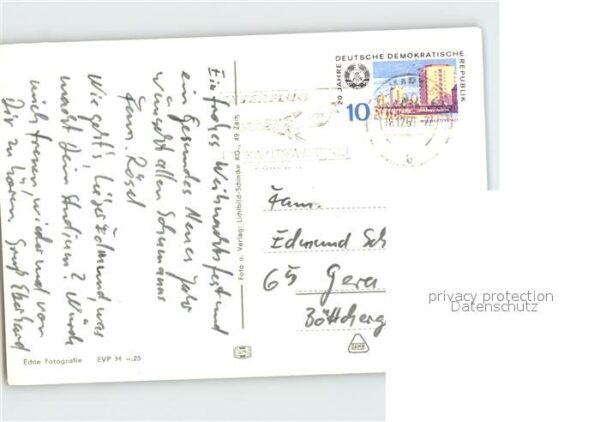 Ein frohes Weihnachtsfest und
ein gesundes Neues Jahr
wünscht allen Schumanns
Fam. Rösel
Wie geht's, lieber Edmund, was
macht Dein Studium? Würde
mich freuen, wieder mal von
Dir zu hören. Gruß Ekkehard
Echte Fotografie EVP M -.25
Foto u. Verlag: Lichtbild-Schincke KG., 49 Zeitz
20 JAHRE DEUTSCHE DEMOKRATISCHE REPUBLIK
10
Fam.
Edmund Sch
65 Gera
Böttcherg
privacy protection
Datenschutz